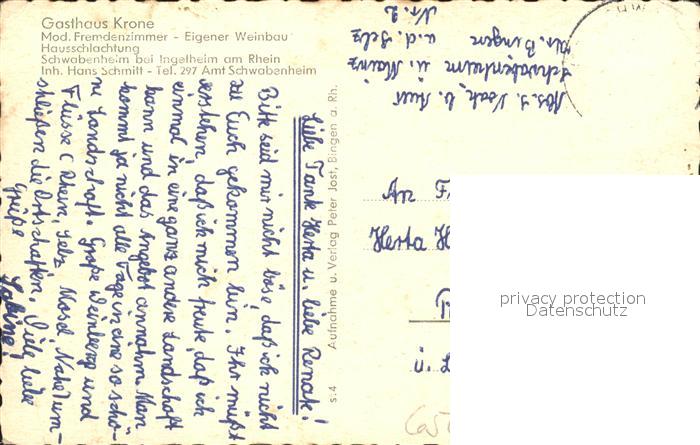 Gasthaus Krone
Mod. Fremdenzimmer - Eigener Weinbau
Hausschlachtung
Schwabenheim bei Ingelheim am Rhein
Inh. Hans Schmitt - Tel. 297 Amt Schwabenheim
Liebe Tante Herta u. liebe Renate!
Bitte seid mir nicht böse, daß ich nicht
zu Euch gekommen bin. Ihr müßt
verstehen, daß ich mich freute, daß ich
einmal in eine ganz andre Landschaft
kann und das Angebot annahm. Man
kommt ja nicht alle Tage in eine so schö-
ne Landschaft. Große Weinberge und
Flüsse (Rhein, Selz, Mosel, Nahe) um-
schließen die Ortschaften. Viele liebe
Grüße Sabine.
s:4 Aufnahme u. Verlag Peter Jost, Bingen a. Rh.
Abs. S. Koch, b. Auer
Schwabenheim ü. Mainz
Kr. Bingen a.d. Selz
Nr. 2
An F
Herta H
ü. L
privacy protection
Datenschutz